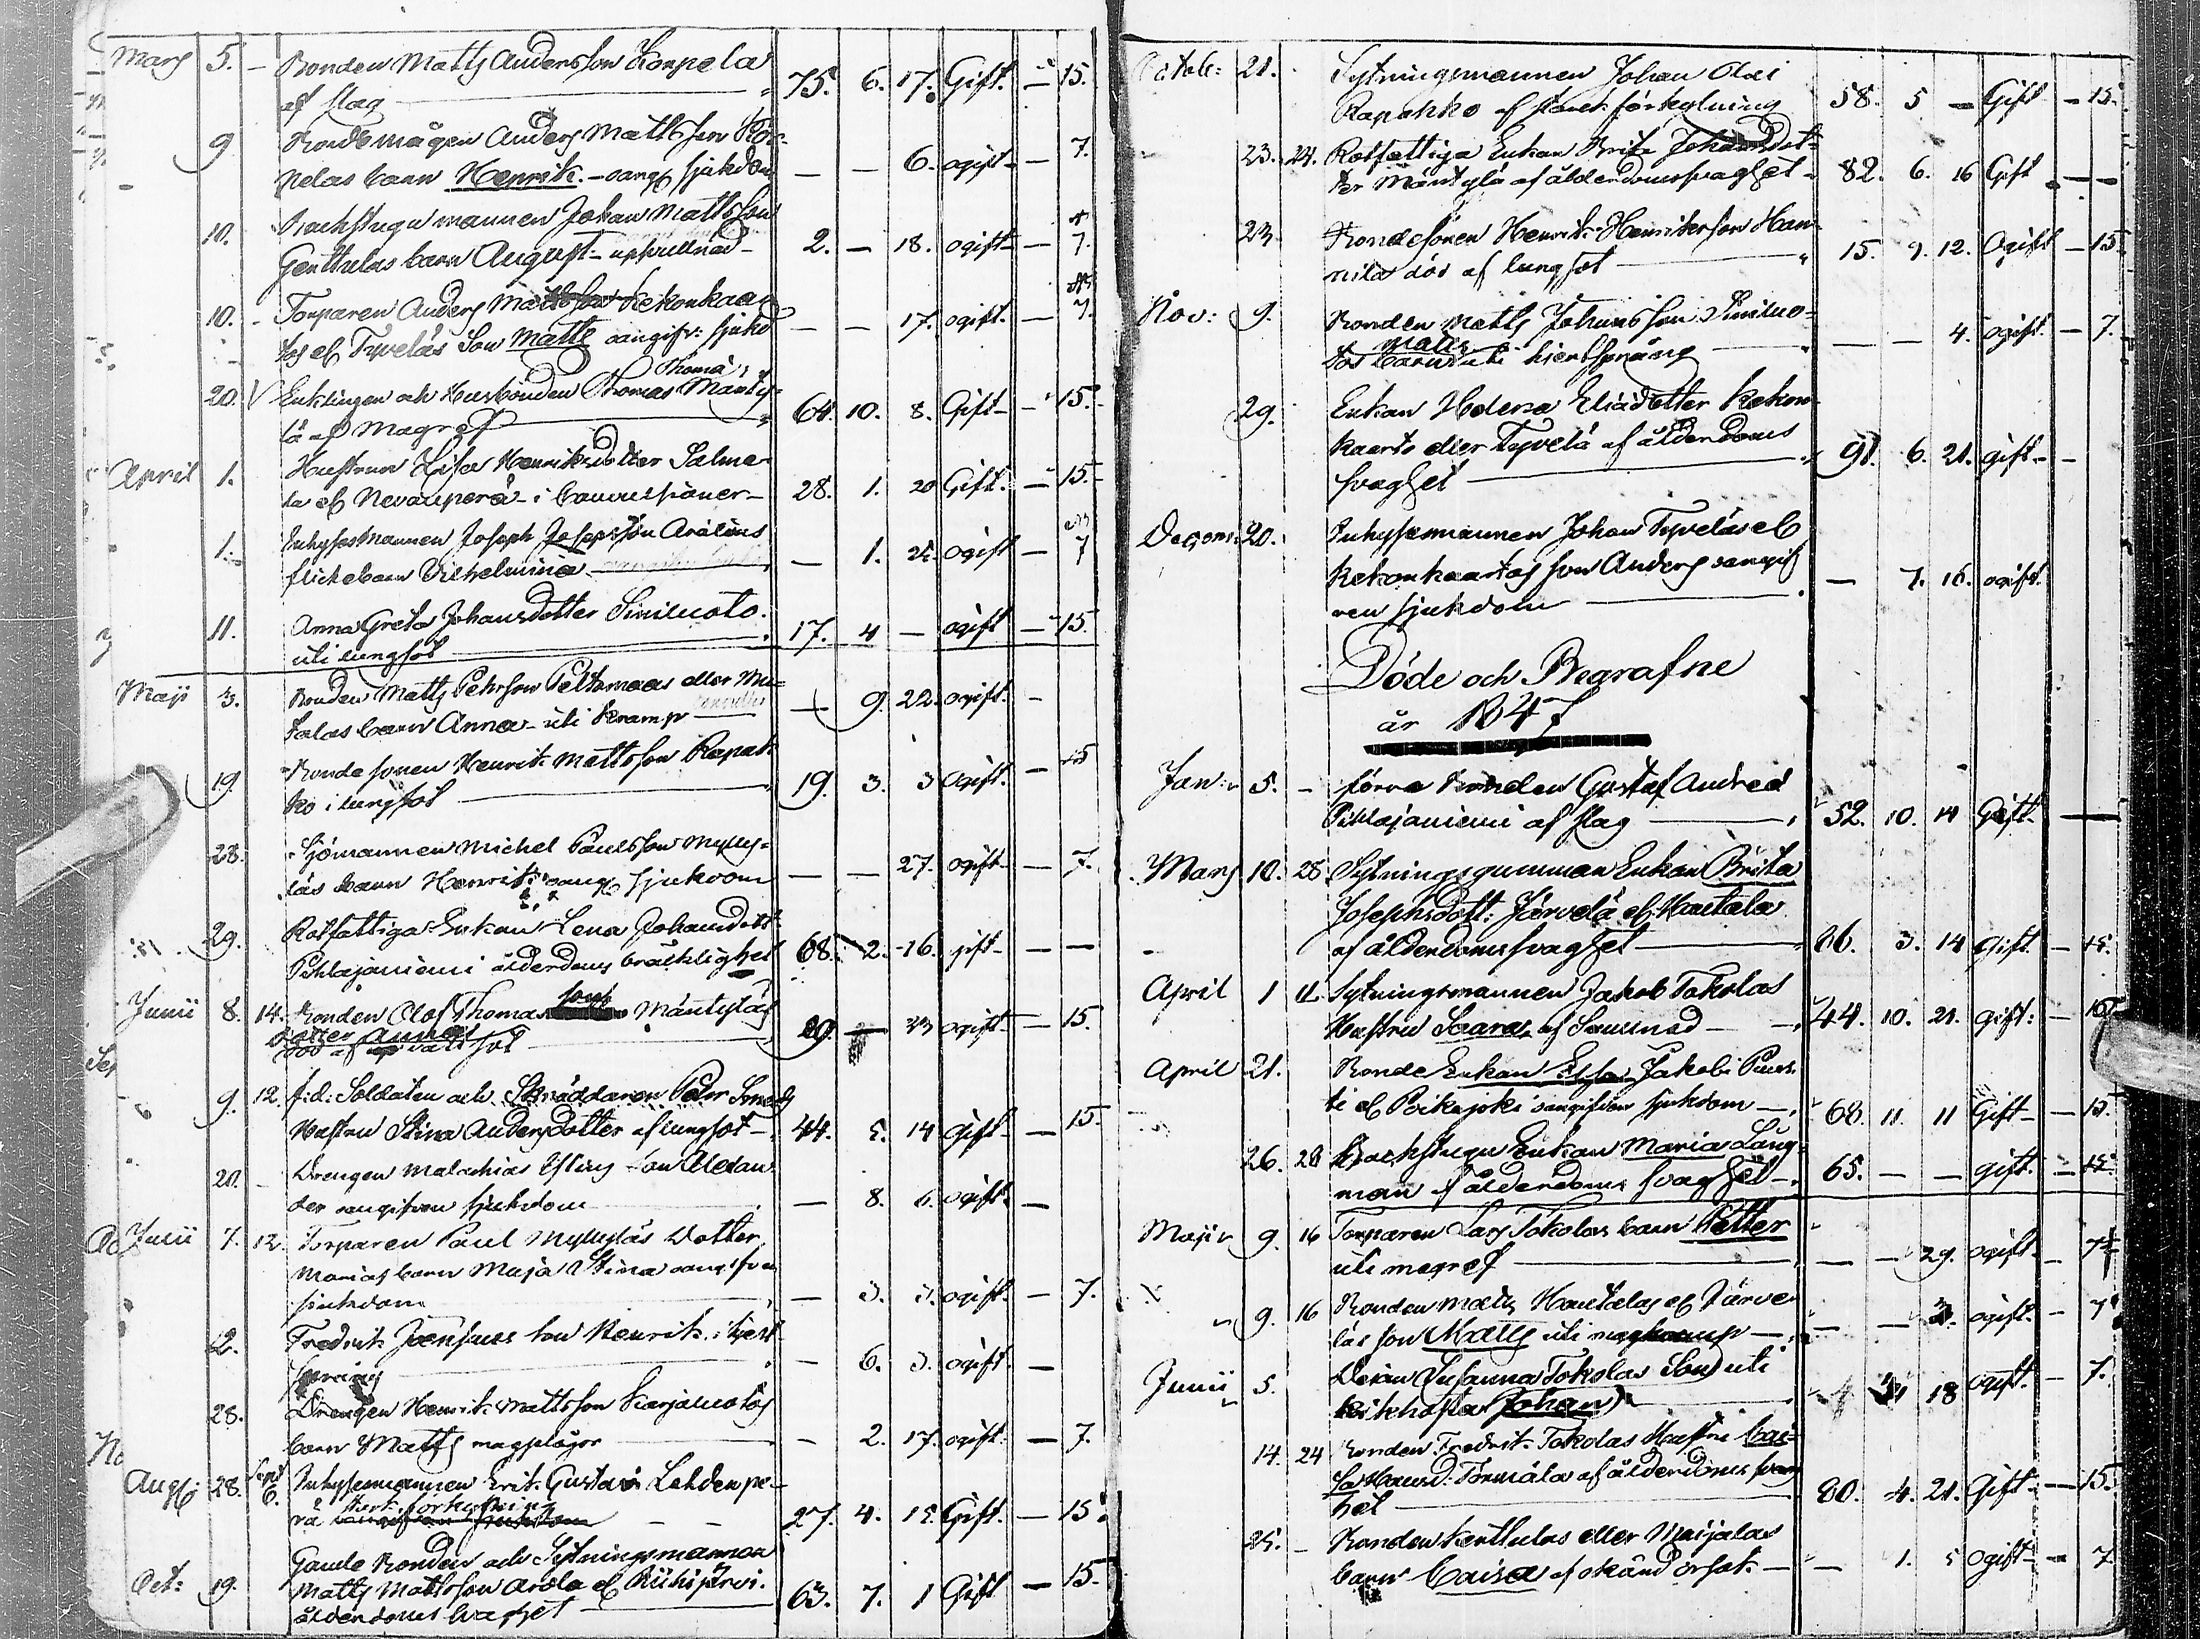 Mars 5. – Bonden Matts Andersson Korpela
af slag 75. 6. 17. Gift. – 15.
9 Bondemågen Anders Mattsson Kor-
pelas barn Henrik. – oang. sjukdom – – 6. ogift – 7.
10. Backstugumannen Johan Mattsson
Genttulas barn August – 2. – 18. ogift – 7.
10. – Torparen Anders Mattsson Kekonkaar-
tos el Tyveläs Son Matts oangifv: sjukd – – 17. ogift. – 7.
Thomæ
20. Enklingen och Husbonden Thomas Mänty-
lä af Magref 64. 10. 8. Gift – 15.
April 1. Hustrun Lisa Henriksdotter Salme-
la el Nevanperä – i barnssänen 28. 1. 20 Gift. – 15.
1. Inhysesmannen Joseph Josephsson
flickebarn Vilhelmina – 1. 24. ogift – 7
11. Anna Greta Johansdotter Siniluoto.
uti lungsot 17. 4 – ogift – 15.
Maji 3. Bonden Matts Pehrsson Peltomaas eller
barn Anna – uti kramp – 9. 22. ogift. –
19. Bondesonen Henrik Mattsson Rapak-
ko i lungsot 19. 3. 3 ogift. – 15
28. Sjömannen Michel Paulsson Mylly-
läs barn Henrik oang. sjukdom – – 27. ogift – 7.
29. Rotfattiga Enkan Lena Johansdott:
Pihlajaniemi ålderdoms bräcklighet 68. 2. 16. gift – –
Junii 8. 14. Bonden Olof Thomas sons Mäntyläs
dotter
död af vattsot 29. – 23 ogift – 15.
9. 12. f:d: Soldaten och Skräddaren Peter
Hustru Stina Andersdotter af lungsot – 44. 5. 14 Gift – 15.
20. – Drengen Malachias son Alexan-
der oangifven sjukdom – 8. 6. ogift –
Julii 7. 12. Torparen Paul Mylyläs Dotter
Marias barn Maja Stina oangifven
sjukdom – 3. 3. ogift. – 7.
12. Fredrik son Henrik. i hjert
språng – 6. 3. ogift. –
28. Drengen Henrik Mattsson Karjaluotos
barn Matts magplågor – 2. 17. ogift – 7.
Aug: 28. Sept 6. Inhysesmannen Erik Gustavs Lehdenpe-
förkylning
rä 27. 4. 15. Gift. – 15.
Oct: 19. Gamle Bonden och Sytningsmannen
Matts Mattsson Arola el Riihijärvi.
ålderdoms svaghet 63. 7. 1 Gift – 15.
Octob: 21. Sytningsmannen Johan Olai
Rapakko af stark förkylning 58. 5 – Gift – 15.
23. 24. Rotfattiga Enkan Brita Johansdot-
ter Mäntylä af ålderdomssvaghet 82. 6. 16 Gift – –
23. Bondesonen Henrik Henriksson Han-
nila död af lungsot 15. 9. 12. Ogift – 15
Nov: 9. Bonden Matts Johansson Siniluo-
Matts
tos barn uti hjertspräng – – 4. ogift. – 7.
29. Enkan Helena Eliædotter Kekon-
kaarto eller Tyvelä af ålderdoms
svaghet 91. 6. 21. gift –
Decem: 20. Inhysesmannen Johan Tyveläs el
Kekonkaartos son Anders oangif
ven sjukdom – 7. 16. ogift.
Döde och Begrafne
år 1847
Jan: 5. – förra Bonden Gustaf Andreæ
Pihlajaniemi af slag 52. 10. 14 Gift –
Mars 10. 28 Sytningsgumman Enkan Brita
Josephsdott: Järvelä el Hautala
af ålderdomssvaghet 86. 3. 14 Gift. – 15.
April 1 11. Sytningsmannen Jakob Tokolas
Hustru Saara af 44. 10. 21. gift: – 15
April 21. Bonde Enkan Elsa Jakobs
el Poikajoki oangifven sjukdom – 68. 11. 11 Gift – 15.
26. 28 Backstugu Enkan Maria Lång-
man af ålderdoms svaghet – 65. – – gift. – 15.
Maji 9. 16 Torparen Lars Tokolas barn Petter
uti magref – – 29. ogift – 7
9. 16 Bonden Matts Hautalas el Järve-
läs son Matts uti – – 3. ogift. – 7
Junii 5. Susanna Tokolas Son uti
kikhosta (Johan) 18 ogift. – 7.
14. 24 Bonden Fredrik Tokolas Hustru Cai-
sa Hansd: Tormälä af ålderdoms svag
het 80. 4. 21. Gift – 15.
25. – Bonden Kenttulas eller Maijalas
barn Caisa af okänd orsak – – 1. 5 ogift – 7